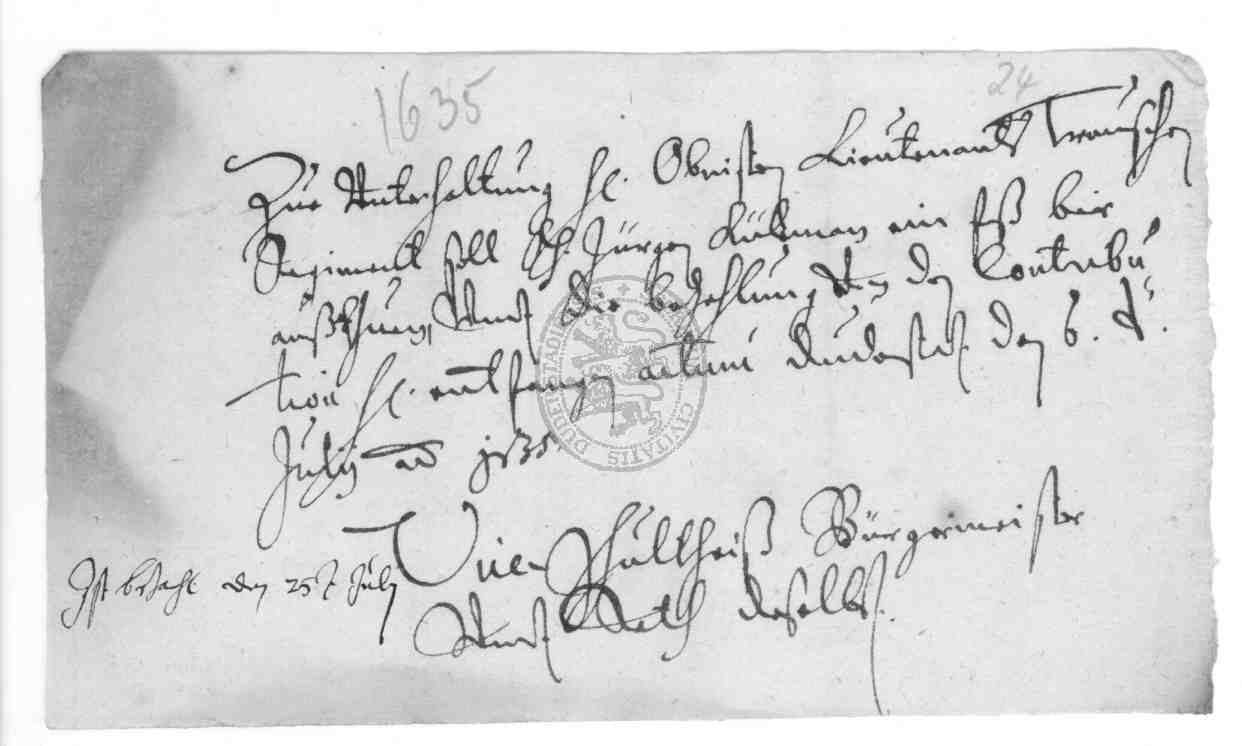 1635
24
Zue Unterhaltung H. Obristen Lieutenants
Regiment soll H. Jürgen Külman ein Faß bier
außthuen, Undt die bezahlung von den Contribu
tion H. entfangen actum Duderstadt den 6.
July ao 1635.
Vice Schultheiß Bürgermeister
Undt Rath daselbst.
Ist bezahlt den 25 July
DUDERSTADI
CIVITATIS